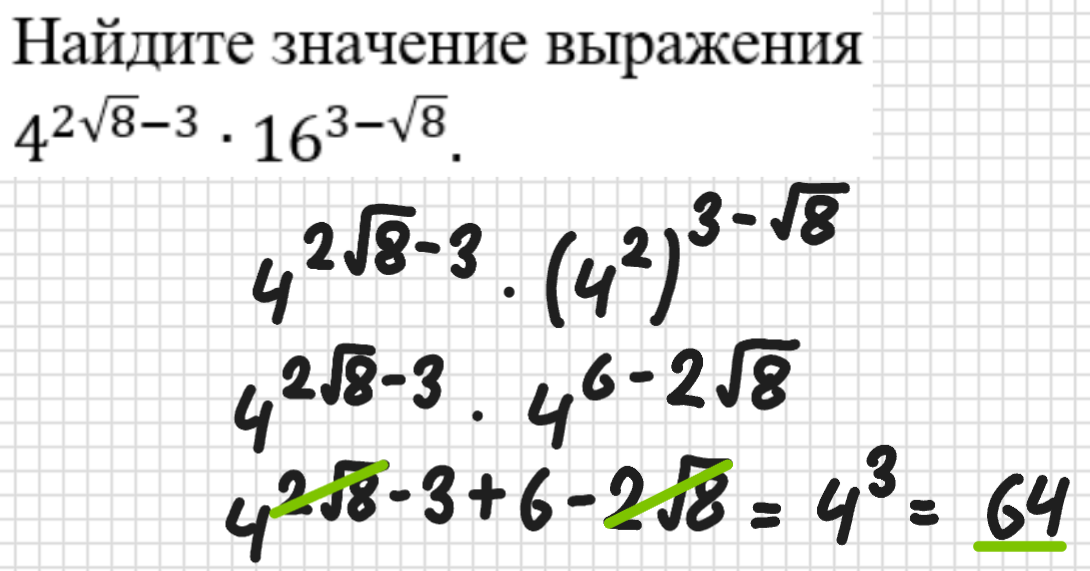 Найдите значение выражения
4^{2√8−3} · 16^{3−√8}.
4^{2√8-3} · (4^2)^{3-√8}
4^{2√8-3} · 4^{6-2√8}
4^{2√8-3+6-2√8} = 4^3 = 64